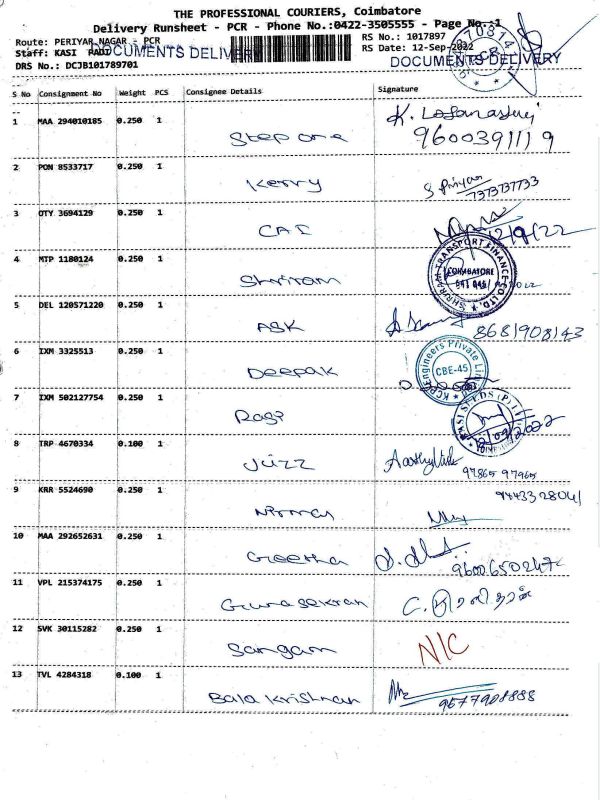 THE PROFESSIONAL COURIERS, Coimbatore
Delivery Runsheet - PCR - Phone No.:0422-3505555 - Page No.:1
Route: PERIYAR NAGAR - PCR RS No.: 1017897
Staff: KASI PADI RS Date: 12-Sep-2022
DOCUMENTS DELIVERY DOCUMENTS DELIVERY
DRS No.: DCJB101789701
S No Consignment No Weight PCS Consignee Details Signature
1 MAA 294010185 0.250 1 Step one K. 9600391119
2 PON 8533717 0.250 1 Kerry S Priya 7373737733
3 OTY 3694129 0.250 1 CAI 12/9/22
4 MTP 1180124 0.250 1 Shriram SHRIRAM TRANSPORT FINANCE CO LTD. COIMBATORE
5 DEL 120571220 0.250 1 ASK 8681908143
6 IXM 3325513 0.250 1 Deepak KCP Engineers Private Lim CBE-45
7 IXM 502127754 0.250 1 Rasi RASI SEEDS (P) LTD 12/09/2022
8 TRP 4670334 0.100 1 Juzz 97865 97965
9 KRR 5524690 0.250 1 Nirmal 9443328041
10 MAA 292652631 0.250 1 Geetha 9600650247
11 VPL 215374175 0.250 1 Gunasekran
12 SVK 30115282 0.250 1 Sangam N/C
13 TVL 4284318 0.100 1 Bala Krishnan 9577908888